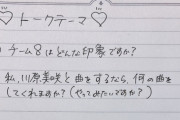 トークテーマ
チーム8はどんな印象ですか?
私、川原美咲と曲をするなら、何の曲を
してくれますか?(やってみたいですか?)